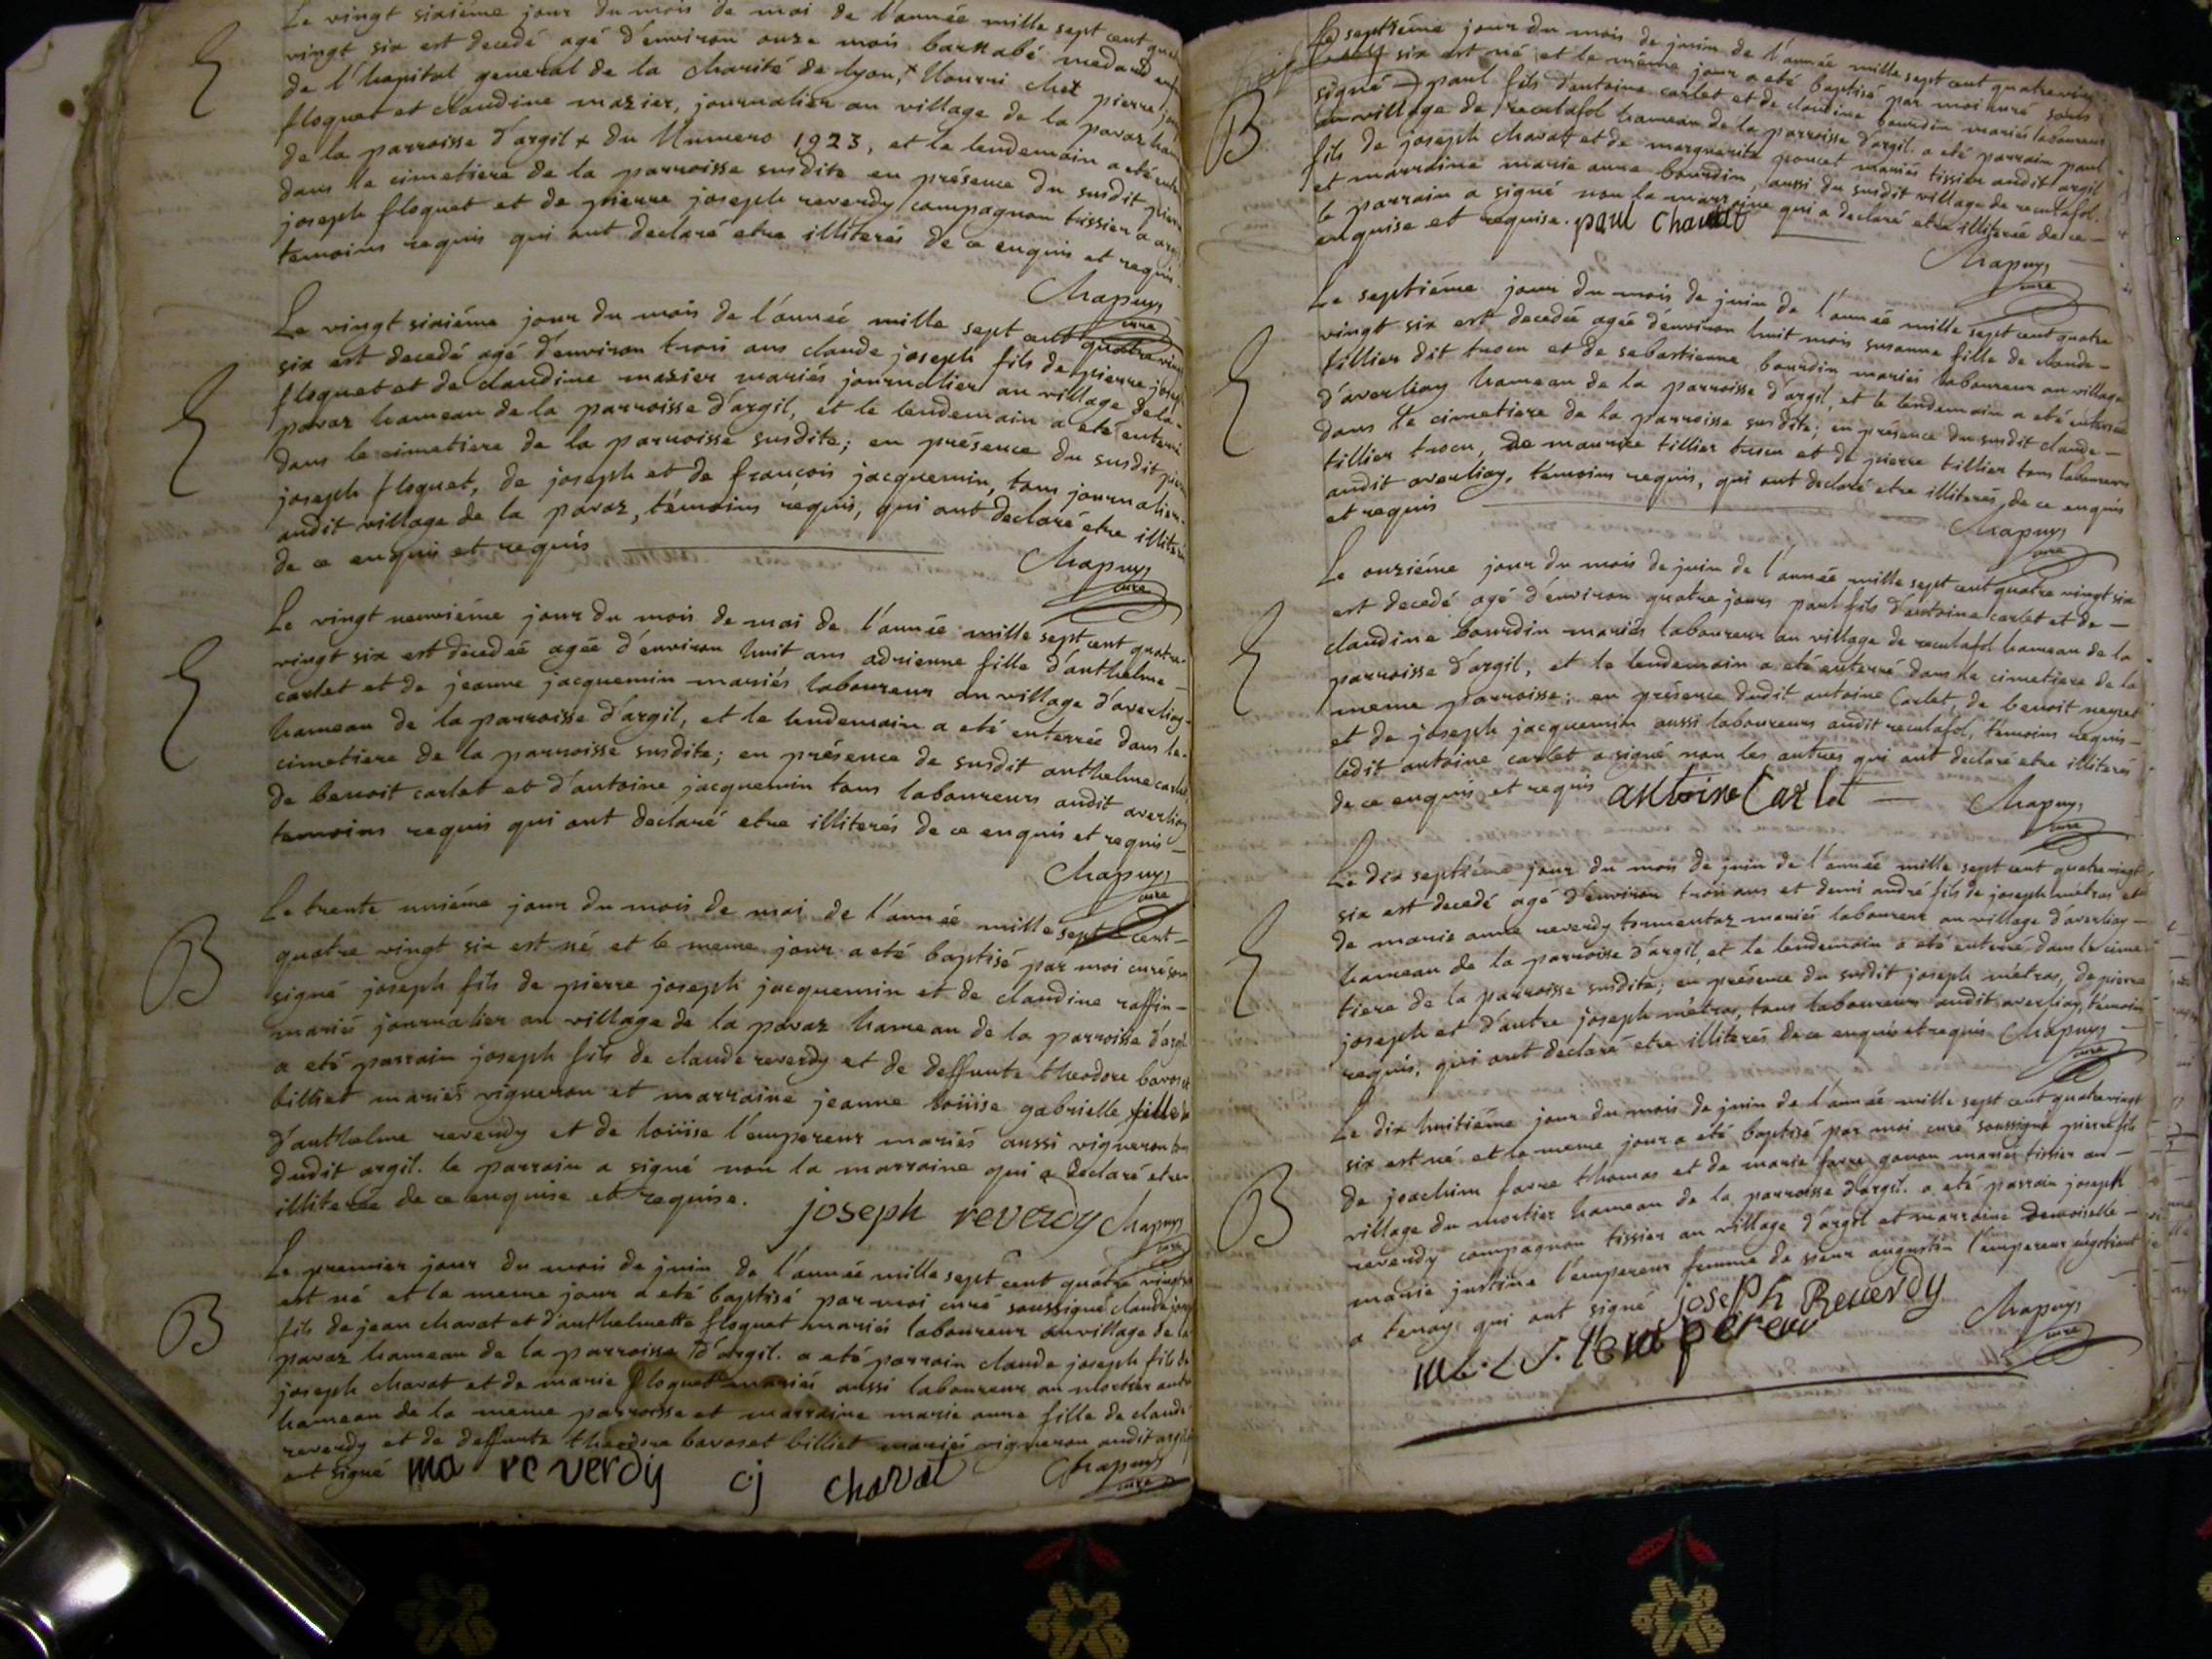 Le vingt sixiéme jour du mois de mai de l'année mille sept cent quatre
vingt six est decedé agé d'environ onze mois barnabé medard enfant
de l'hopital general de la charité de lyon, + Nourri chez pierre joseph
floquet et claudine mazier, journalier au village de la pavaz hameau
de la parroisse d'argil + du Numero 1923, et le lendemain a eté enterré
dans le cimetiere de la parroisse susdite en présence du susdit pierre
joseph floquet et de pierre joseph reverdy compagnon tissier a argil
temoins requis qui ont declaré etre illiterés de ce enquis et requis.
Chapuys
curé
Le vingt sixiéme jour du mois de l'année mille sept cent quatre vingt
six est decedé agé d'environ trois ans claude joseph fils de pierre joseph
floquet et de claudine mazier mariés journalier au village de la
pavaz hameau de la parroisse d'argil, et le lendemain a eté enterré
dans le cimetiere de la parroisse susdite; en présence du susdit pierre
joseph floquet, de joseph et de françois jacquemin, tous journaliers
audit village de la pavaz, témoins requis, qui ont declaré etre illiterés
de ce enquis et requis
Chapuys
curé
Le vingt neuviéme jour du mois de mai de l'année mille sept cent quatre
vingt six est decedée agée d'environ huit ans adrienne fille d'anthelme
carlet et de jeanne jacquemin mariés laboureur au village d'averliay
hameau de la parroisse d'argil, et le lendemain a eté enterrée dans le
cimetiere de la parroisse susdite; en présence de susdit anthelme carlet
de benoit carlet et d'antoine jacquemin tous laboureurs audit averliay
temoins requis qui ont declaré etre illiterés de ce enquis et requis
Chapuys
curé
Le trente uniéme jour du mois de mai de l'année mille sept cent
B
quatre vingt six est né et le meme jour a eté baptisé par moi curé sous
signé joseph fils de pierre joseph jacquemin et de claudine raffin
mariés journalier au village de la pavaz hameau de la parroisse d'argil
a eté parrain joseph fils de claude reverdy et de deffunte theodore bavoset
billiet mariés vigneron et marraine jeanne loüise gabrielle fille
d'anthelme reverdy et de loüise l'empereur mariés aussi vigneron tous
dudit argil. le parrain a signé non la marraine qui a declaré etre
illiterée de ce enquise et requise. joseph reverdy Chapuys
curé
Le premier jour du mois de juin de l'année mille sept cent quatre vingt six
B
est né et le meme jour a eté baptisé par moi curé soussigné claude joseph
fils de jean charat et d'anthelmette floquet mariés laboureur au village de la
pavaz hameau de la parroisse d'argil. a eté parrain claude joseph fils de
joseph charat et de marie floquet mariés aussi laboureur au mortier autre
hameau de la meme parroisse et marraine marie anne fille de claude
reverdy et de deffunte theodore bavoset billiet mariés vigneron audit argil
ont signé ma reverdy cj charat Chapuys
curé
Le septiéme jour du mois de juin de l'année mille sept cent quatre vingt
six est né et le même jour a eté baptisé par moi curé sous
B
signé paul fils d'antoine carlet et de claudine bourdin mariés laboureur
au village de reculafol hameau de la parroisse d'argil. a eté parrain paul
fils de joseph charat et de marguerite poncet mariés tissier audit argil
et marraine marie anne bourdin, aussi du susdit village de reculafol.
le parrain a signé non la marraine qui a declaré etre illiterée de ce
enquise et requise. paul charat
Chapuys
curé
Le septiéme jour du mois de juin de l'année mille sept cent quatre
vingt six est decedée agée d'environ huit mois susanne fille de claude
tillier dit trocu et de sebastienne bourdin mariés laboureur au village
d'averliay hameau de la parroisse d'argil, et le lendemain a eté enterrée
dans le cimetiere de la parroisse susdite; en présence du susdit claude
tillier trocu, de maurice tillier trocu et de pierre tillier tous laboureurs
audit averliay, témoins requis, qui ont declaré etre illiterés, de ce enquis
et requis
Chapuys
curé
Le onziéme jour du mois de juin de l'année mille sept cent quatre vingt six
est decedé agé d'environ quatre jours paul fils d'antoine carlet et de
claudine bourdin mariés laboureur au village de reculafol hameau de la
parroisse d'argil, et le lendemain a eté enterré dans le cimetiere de la
meme parroisse; en présence dudit antoine Carlet, de benoit neyret
et de joseph jacquemin aussi laboureurs audit reculafol, témoins requis
ledit antoine carlet a signé non les autres qui ont declaré etre illiterés
de ce enquis et requis antoine Carlet
Chapuys
curé
Le dix septiéme jour du mois de juin de l'année mille sept cent quatre vingt
six est decedé agé d'environ trois ans et demi andré fils de joseph métras et
de marie anne reverdy tormentaz mariés laboureur au village d'averliay
hameau de la parroisse d'argil, et le lendemain a eté enterré dans le cime
tiere de la parroisse susdite; en présence du susdit joseph métras, de pierre
joseph et d'autre joseph métras, tous laboureurs audit averliay, témoins
requis, qui ont declaré etre illiterés de ce enquis et requis Chapuys
curé
Le dix huitiéme jour du mois de juin de l'année mille sept cent quatre vingt
six est né et le meme jour a eté baptisé par moi curé soussigné pierre fils
B
de joachim favre thomas et de marie favre gonon mariés tissier au
village du mortier hameau de la parroisse d'argil. a eté parrain joseph
reverdy compagnon tissier au village d'argil et marraine demoiselle
marie justine l'empereur femme de sieur augustin l'empereur négotiant
a tenay qui ont signé joseph Reverdy
Chapuys
curé
l'empereur